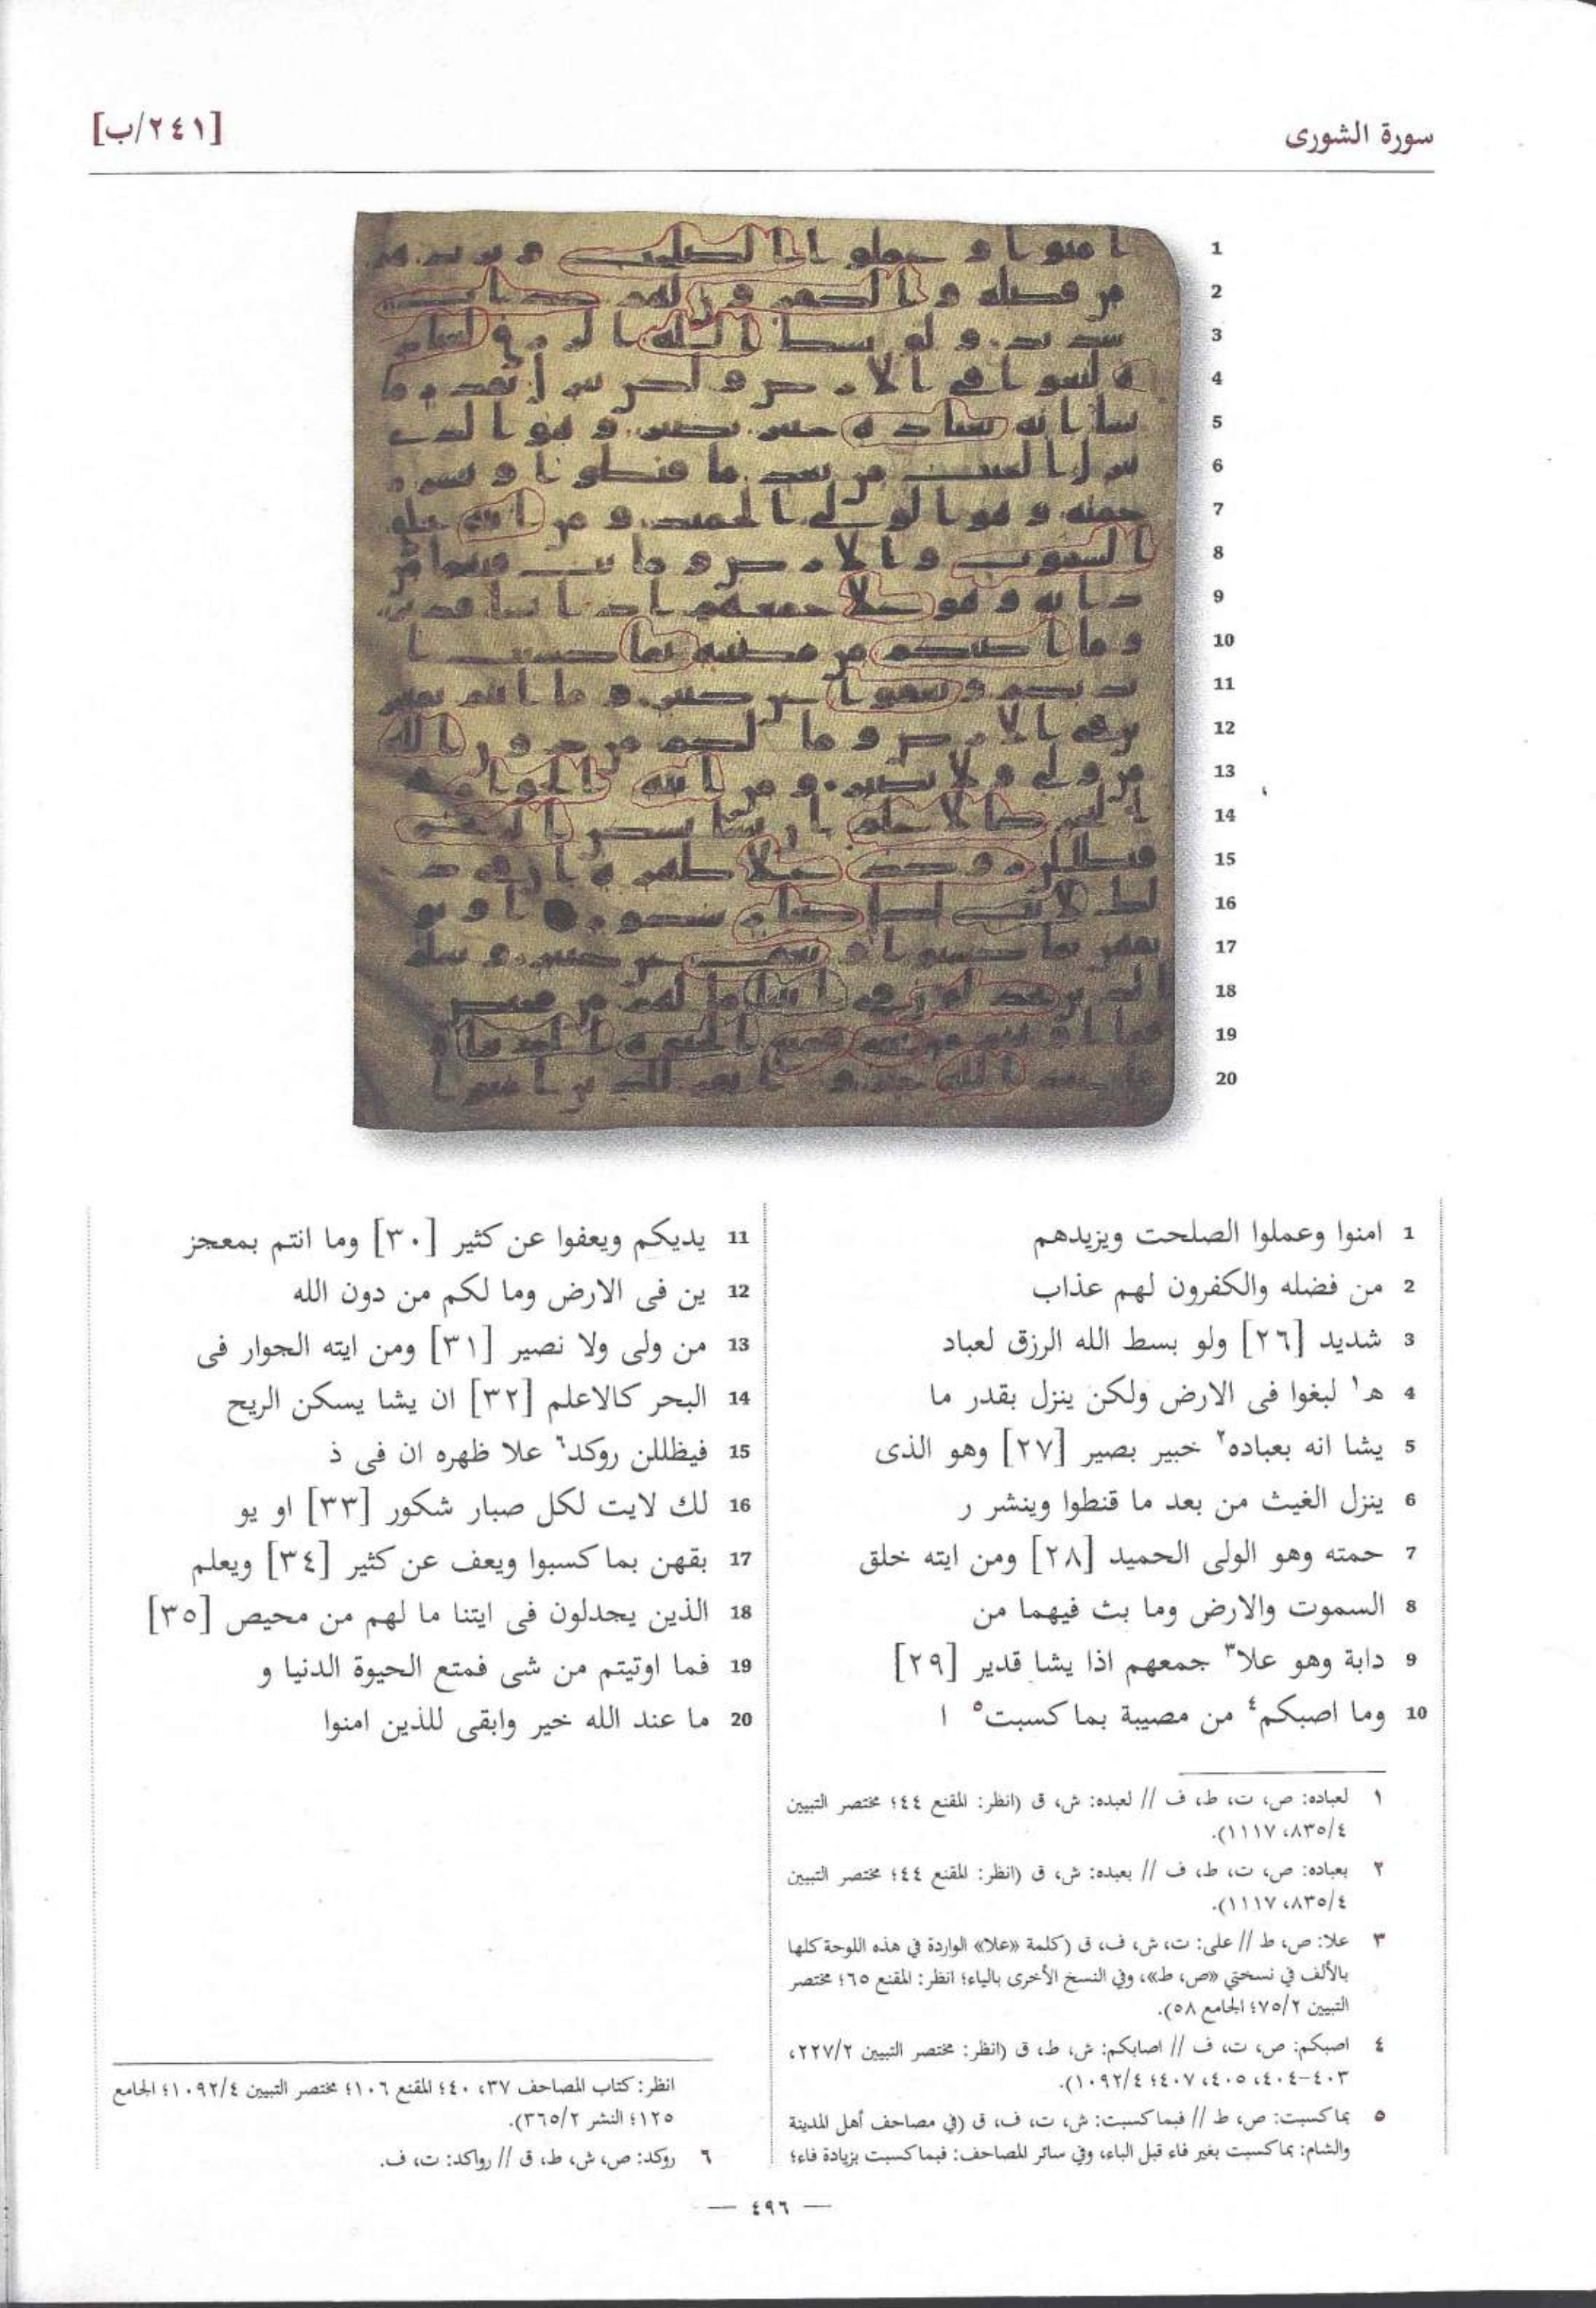 سورة الشورى
[٢٤١/ب]
1 امنوا وعملوا الصلحت ويزيدهم
2 من فضله والكفرون لهم عذاب
3 شديد [٢٦] ولو بسط الله الرزق لعباد
4 ه١ لبغوا فى الارض ولكن ينزل بقدر ما
5 يشا انه بعباده٢ خبير بصير [٢٧] وهو الذى
6 ينزل الغيث من بعد ما قنطوا وينشر ر
7 حمته وهو الولى الحميد [٢٨] ومن ايته خلق
8 السموت والارض وما بث فيهما من
9 دابة وهو علا٣ جمعهم اذا يشا قدير [٢٩]
10 وما اصبكم٤ من مصيبة بما كسبت٥ ا
11 يديكم ويعفوا عن كثير [٣٠] وما انتم بمعجز
12 ين فى الارض وما لكم من دون الله
13 من ولى ولا نصير [٣١] ومن ايته الجوار فى
14 البحر كالاعلم [٣٢] ان يشا يسكن الريح
15 فيظللن روكد٦ علا ظهره ان فى ذ
16 لك لايت لكل صبار شكور [٣٣] او يو
17 بقهن بما كسبوا ويعف عن كثير [٣٤] ويعلم
18 الذين يجدلون فى ايتنا ما لهم من محيص [٣٥]
19 فما اوتيتم من شى فمتع الحيوة الدنيا و
20 ما عند الله خير وابقى للذين امنوا
١ لعباده: ص، ت، ط، ف // لعبده: ش، ق (انظر: المقنع ٤٤؛ مختصر التبيين
٨٣٥/٤، ١١١٧).
٢ بعباده: ص، ت، ط، ف // بعبده: ش، ق (انظر: المقنع ٤٤؛ مختصر التبيين
٨٣٥/٤، ١١١٧).
٣ علا: ص، ط // على: ت، ش، ف، ق (كلمة «علا» الواردة في هذه اللوحة كلها
بالألف في نسختي «ص، ط»، وفي النسخ الأخرى بالياء؛ انظر: المقنع ٦٥؛ مختصر
التبيين ٧٥/٢؛ الجامع ٥٨).
٤ اصبكم: ص، ت، ف // اصابكم: ش، ط، ق (انظر: مختصر التبيين ٢٢٧/٢،
٤٠٣-٤٠٤، ٤٠٥، ٤٠٧؛ ١٠٩٢/٤).
٥ بما كسبت: ص، ط // فبما كسبت: ش، ت، ف، ق (في مصاحف أهل المدينة
والشام: بما كسبت بغير فاء قبل الباء، وفي سائر المصاحف: فبما كسبت بزيادة فاء؛
انظر: كتاب المصاحف ٣٧، ٤٠؛ المقنع ١٠٦؛ مختصر التبيين ١٠٩٢/٤؛ الجامع
١٢٥؛ النشر ٣٦٥/٢).
٦ روكد: ص، ش، ط، ق // رواكد: ت، ف.
— ٤٩٦ —